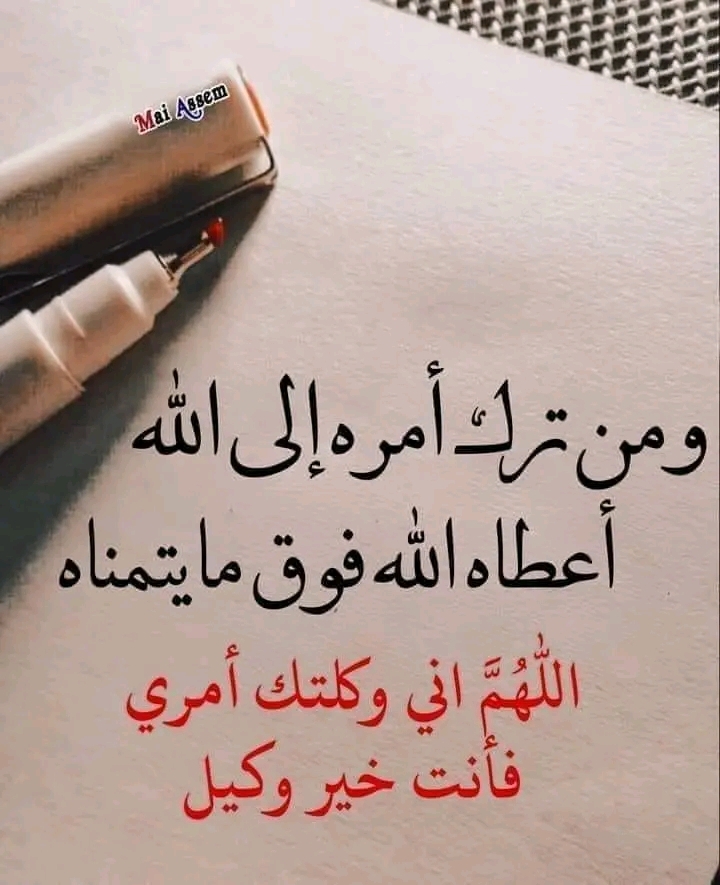 Mai Assem
ومن ترك أمره إلى الله
أعطاه الله فوق ما يتمناه
اللّٰهُمَّ اني وكلتك أمري
فأنت خير وكيل